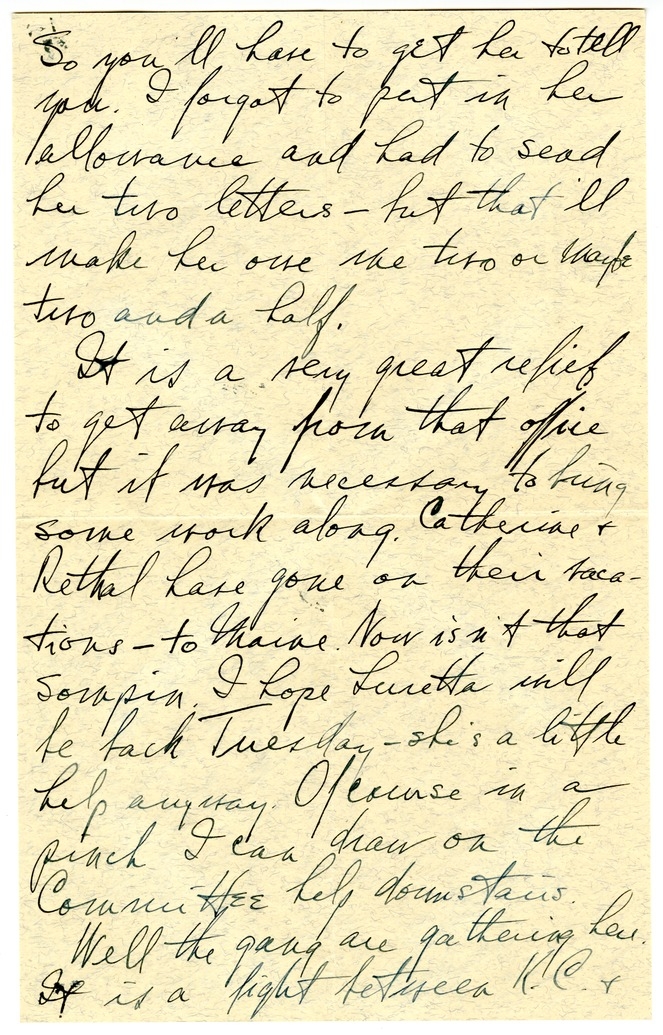 So you'll have to get her to tell
you. I forgot to put in her
allowance and had to send
her two letters – but that'll
make her owe me two or maybe
two and a half.
It is a very great relief
to get away from that office
but it was necessary to bring
some work along. Catherine &
Rethal have gone on their vaca-
tions – to Maine. Now isn't that
sompin. I hope Luretta will
be back Tuesday – she's a little
help anyway. Of course in a
pinch I can draw on the
Committee help downstairs.
Well the gang are gathering here.
It is a fight between K.C. &